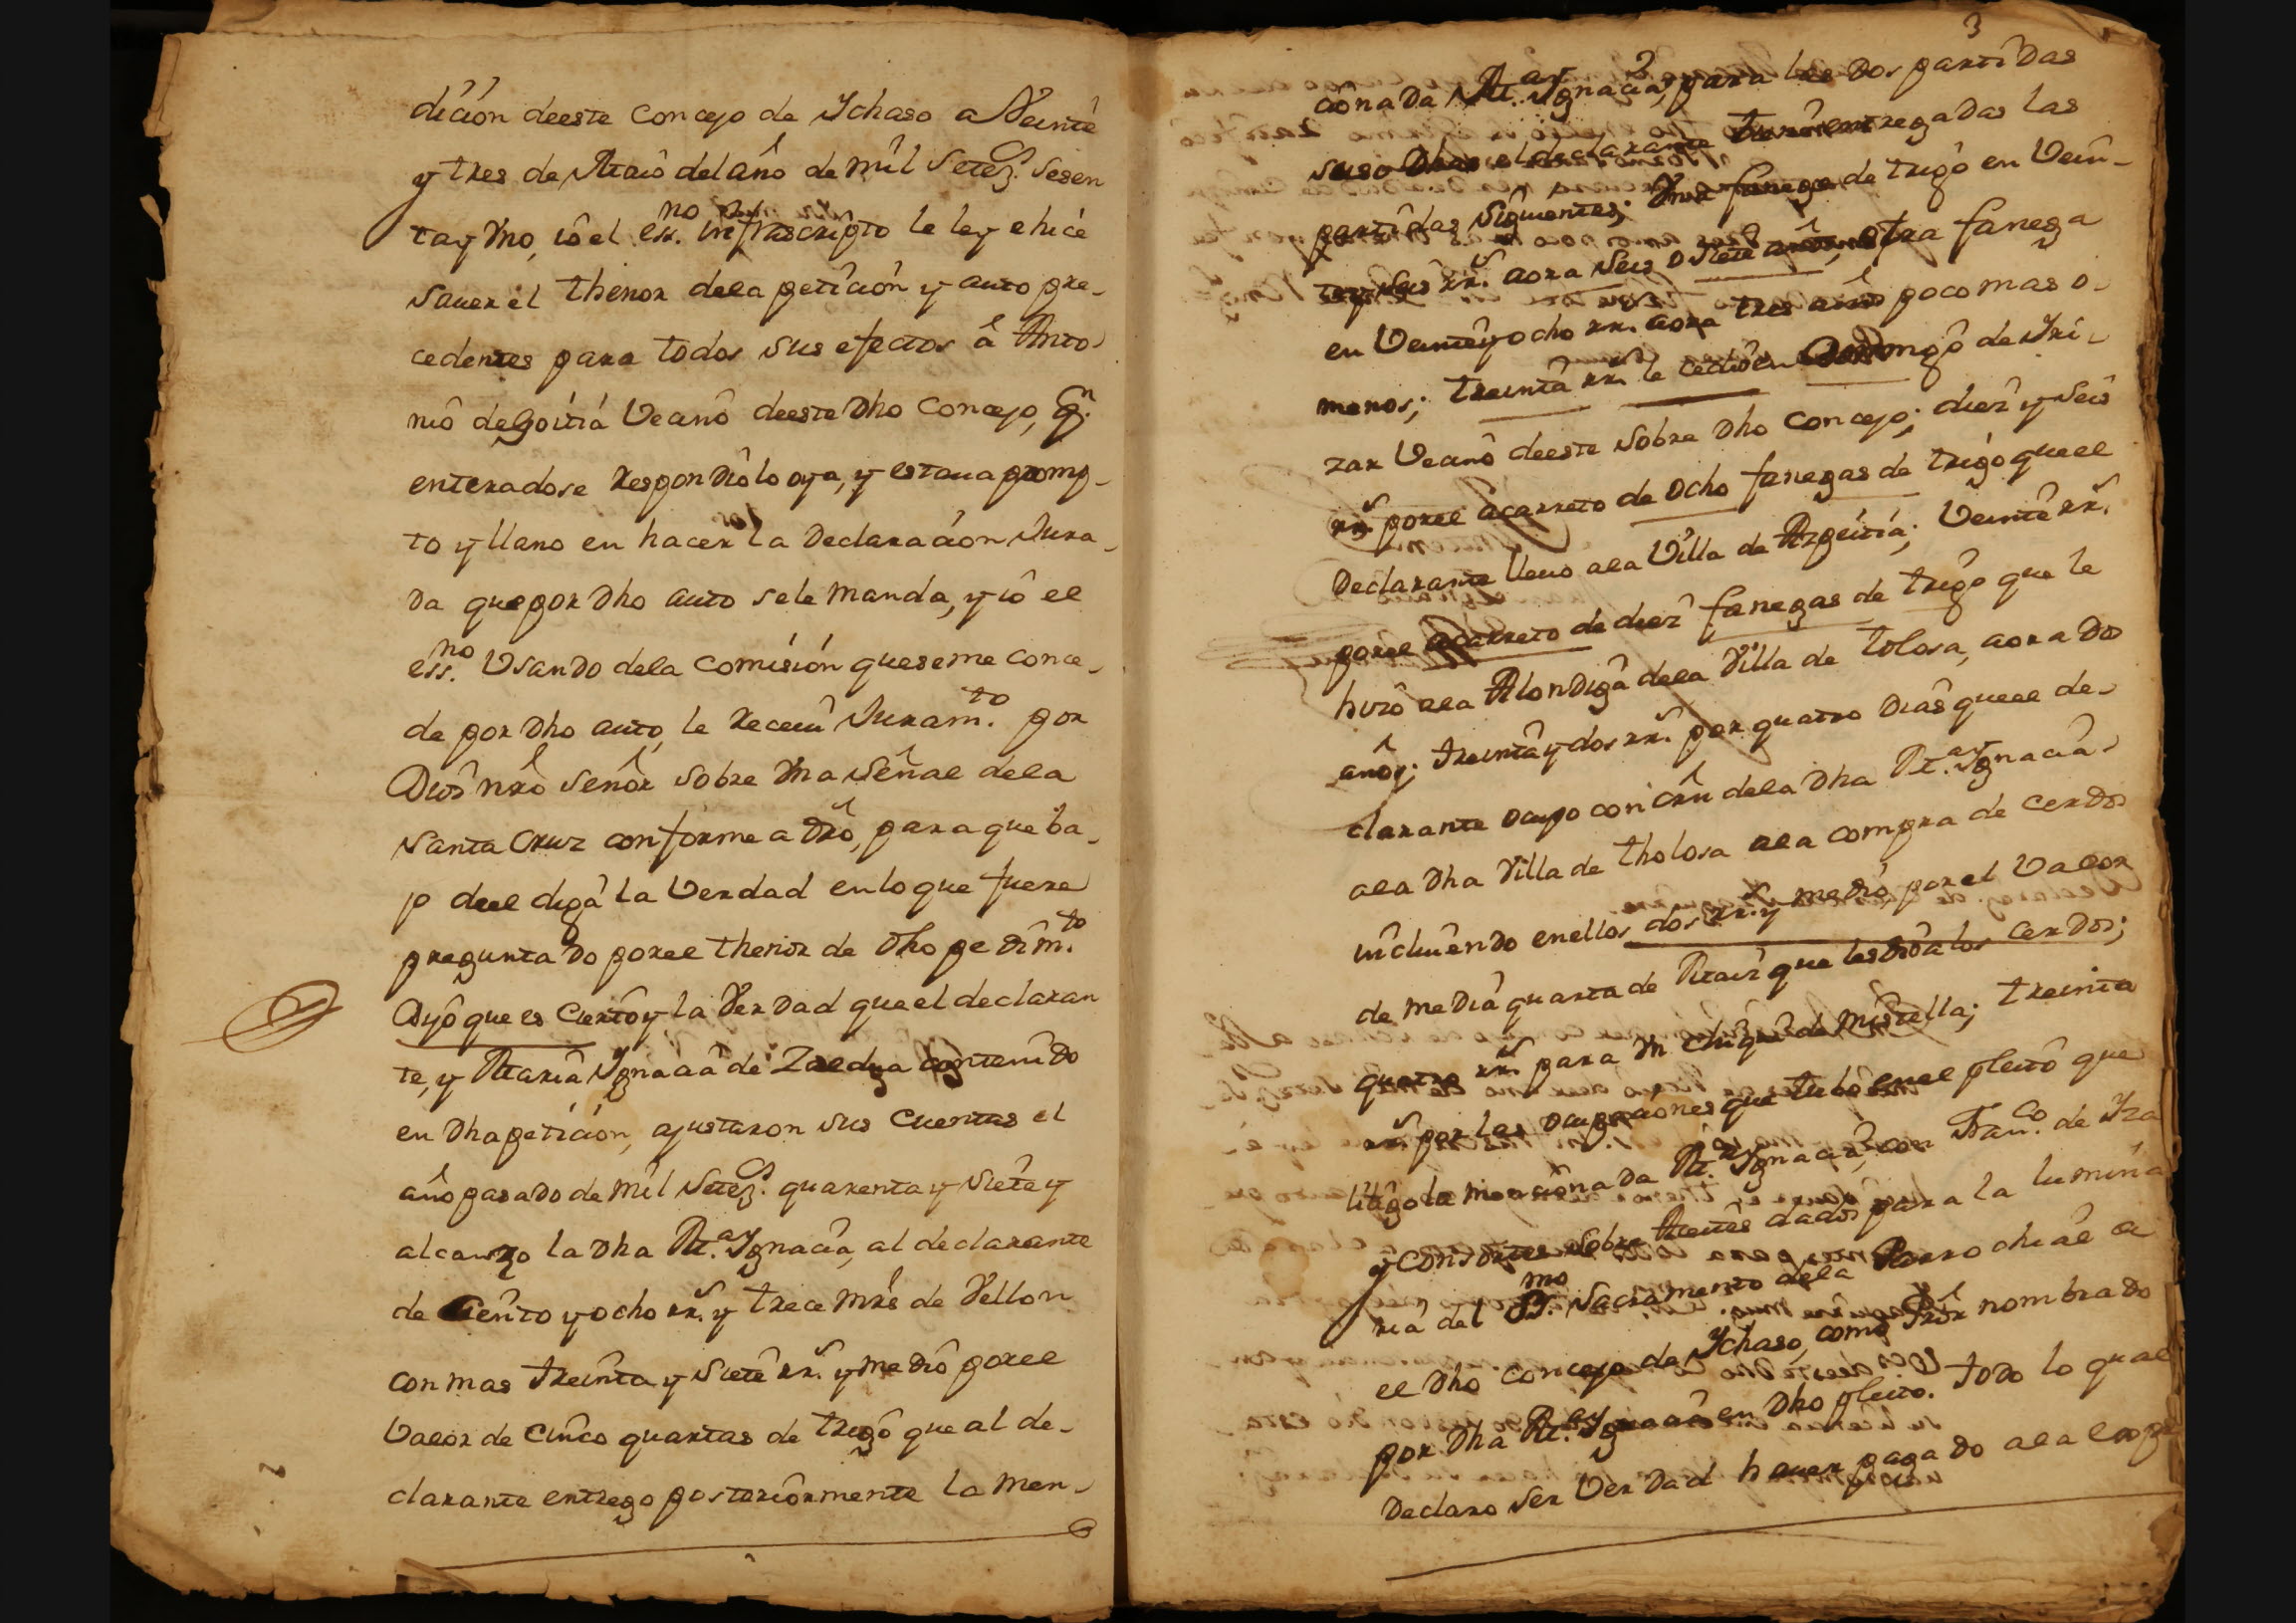 dición deeste Concejo de Ychaso a Veinte
y tres de Maio del año de mil Setez.s Sesen
ta y Uno, io el ess.no infrascripto le ley e hice
Saver el thenor dela petición y auto pre-
cedentes para todos sus efectos â Anto
nio de Goitia Vecino deeste Dho Concejo, q.n
enteradose Respondio lo oya, y estaua promp-
to y llano en hacer la Declaracion Jura-
da que por Dho auto se le manda, y io el
ess.no Usando dela Comisión que se me conce-
de por Dho auto, le Receui Juram.to por
Dios nrô Señor sobre Una Señal dela
Santa Cruz conforme a Drô, para que ba-
jo deel diga la Verdad en lo que fuere
preguntado por el thenor de Dho pedim.to
Dijo que es Cierto y la Verdad que el declaran
te, y Maria Ygnacia de Zaldua contenido
en Dha petición, ajustaron sus Cuentas el
año pasado de mil Setez.s quarenta y Siete y
alcanzo la Dha M.a Ygnacia, al declarante
de Ciento y ocho rr.s y trece mrs de Vellon
con mas treinta y Siete rr.s y medio por el
Valor de Cinco quartas de trigo que al de-
clarante entrego posteriormente la men-
3
2
cionada M.a Ygnacia, para las Dos partidas
suso Dhas el declarante entregadas las
partidas Siguientes; Una fanega de trigo en Vein-
te y Seis rr.s aora Seis o Siete años, otra fanega
en Veinte y ocho rr.s aora tres años poco mas o
menos; treinta rr.s le cedio en Domingo de Yri-
zar Vecino deeste sobre Dho Concejo; diez y Seis
rr.s por el acarreto de Ocho fanegas de trigo que el
Declarante lleuo ala Villa de Azpeitia; Veinte rr.s
por el acarreto de diez fanegas de trigo que le
hizo ala Alondiga dela Villa de Tolosa, aora dos
años; treinta y dos rr.s por quatro Dias que el de-
clarante ocupo con dela Dha M.a Ygnacia
ala Dha Villa de Tholosa ala compra de cerdos
incluiendo en ellos dos rr.s y medio por el Valor
de media quarta de Maiz que les dio a los Cerdos;
quatro rr.s para Un de Mistella; treinta
rr.s por las ocupaciones que tubo en el pleito que
litigo la mencionada M.a Ygnacia, con Fran.co de Yza
y Consortes sobre dados para la lumina
ria del SS.mo Sacramento dela Parrochial de
el Dho Concejo de Ychaso, como nombrado
por Dha M.a Ygnacia en Dho pleito. todo lo qual
Declaro Ser Verdad hauer pagado ala